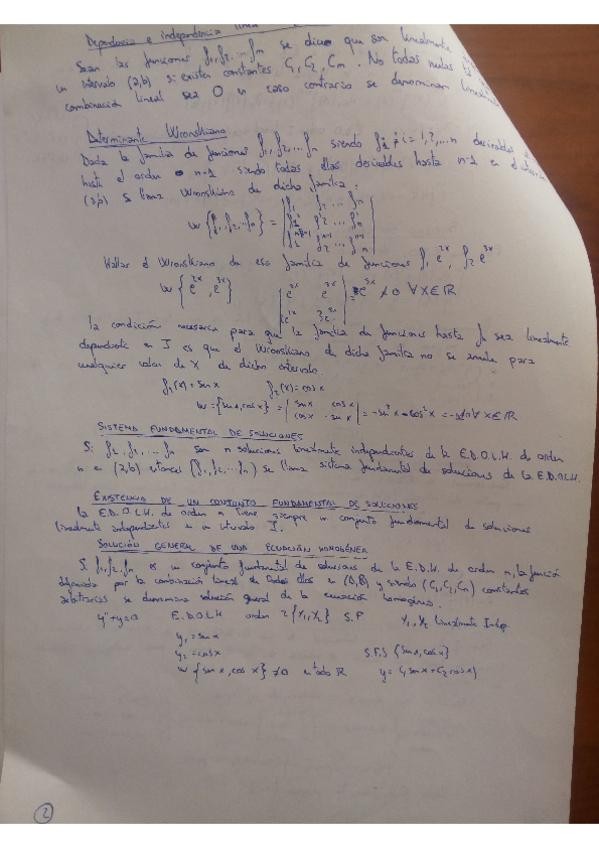 Dependencia e independencia lineal
Sean las funciones f1, f2, ... fm se dice que son linealmente
un intervalo (a,b) si existen constantes C1, C2, Cm. No todas nulas
combinación lineal sea 0 en caso contrario se denominan
Determinante Wronskiano
Dada la familia de funciones f1, f2, ... fn siendo fi i=1,2,...n derivables
hasta el orden n-1 siendo todas ellas derivables hasta n-1 en el
(a,b) se llama Wronskiano de dicha familia:
w {f1, f2, ..fn} = | f1 f2 ... fn |
Hallar el Wronskiano de esa familia de funciones f1 e^2x, f2 e^3x
w { e^2x, e^3x } | e^2x e^3x | = e^5x ≠0 ∀ x∈ℝ
La condición necesaria para que la familia de funciones hasta fn sea linealmente
dependiente en I es que el Wronskiano de dicha familia no se anule para
cualquier valor de X de dicho intervalo.
f1(x)=senx f2(x)=cosx
w={senx,cosx} = | senx cosx | = -sen²x-cos²x = -1≠0 ∀x∈ℝ
cosx -senx
SISTEMA FUNDAMENTAL DE SOLUCIONES
Si f1, f2, ... fn son n soluciones linealmente independientes de la E.D.O.L.H. de orden
n en (a,b) entonces (f1, f2, ... fn) se llama sistema fundamental de soluciones de la E.D.O.L.H.
EXISTENCIA DE UN CONJUNTO FUNDAMENTAL DE SOLUCIONES
La E.D.O.L.H. de orden n tiene siempre un conjunto fundamental de soluciones
linealmente independientes en un intervalo I.
SOLUCIÓN GENERAL DE UNA ECUACIÓN HOMOGÉNEA
Si f1, f2, fn es un conjunto fundamental de soluciones de la E.D.H. de orden n, la función
definida por la combinación lineal de todas ellas en (a,b) y siendo (C1, C2, Cn) constantes
arbitrarias se denomina solución general de la ecuación homogénea.
y''+y=0 E.D.O.L.H orden 2 {Y1, Y2} S.F Y1, Y2 linealmente Indep.
y1=senx
y2=cosx S.F.S {senx,cosx}
w {senx,cosx} ≠0 en todo ℝ y= C1senx+C2cosx
2